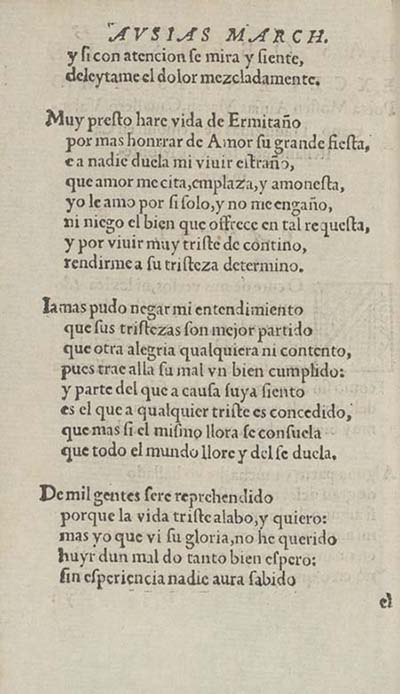 AVSIAS MARCH.
y si con atencion se mira y siente,
deleytame el dolor mezcladamente.
Muy presto hare vida de Ermitaño
por mas honrrar de Amor su grande fiesta,
e a nadie duela mi viuir estraño,
que amor me cita, emplaza, y amonesta,
yo le amo por si solo, y no me engaño,
ni niego el bien que offrece en tal requesta,
y por viuir muy triste de contino,
rendirme a su tristeza determino.
Iamas pudo negar mi entendimiento
que sus tristezas son mejor partido
que otra alegria qualquiera ni contento,
pues trae alla su mal vn bien cumplido:
y parte del que a causa suya siento
es el que a qualquier triste es concedido,
que mas si el mismo llora se consuela
que todo el mundo llore y del se duela.
De mil gentes sere reprehendido
porque la vida triste alabo, y quiero:
mas yo que vi su gloria, no he querido
huyr dun mal do tanto bien espero:
sin esperiencia nadie aura sabido
el